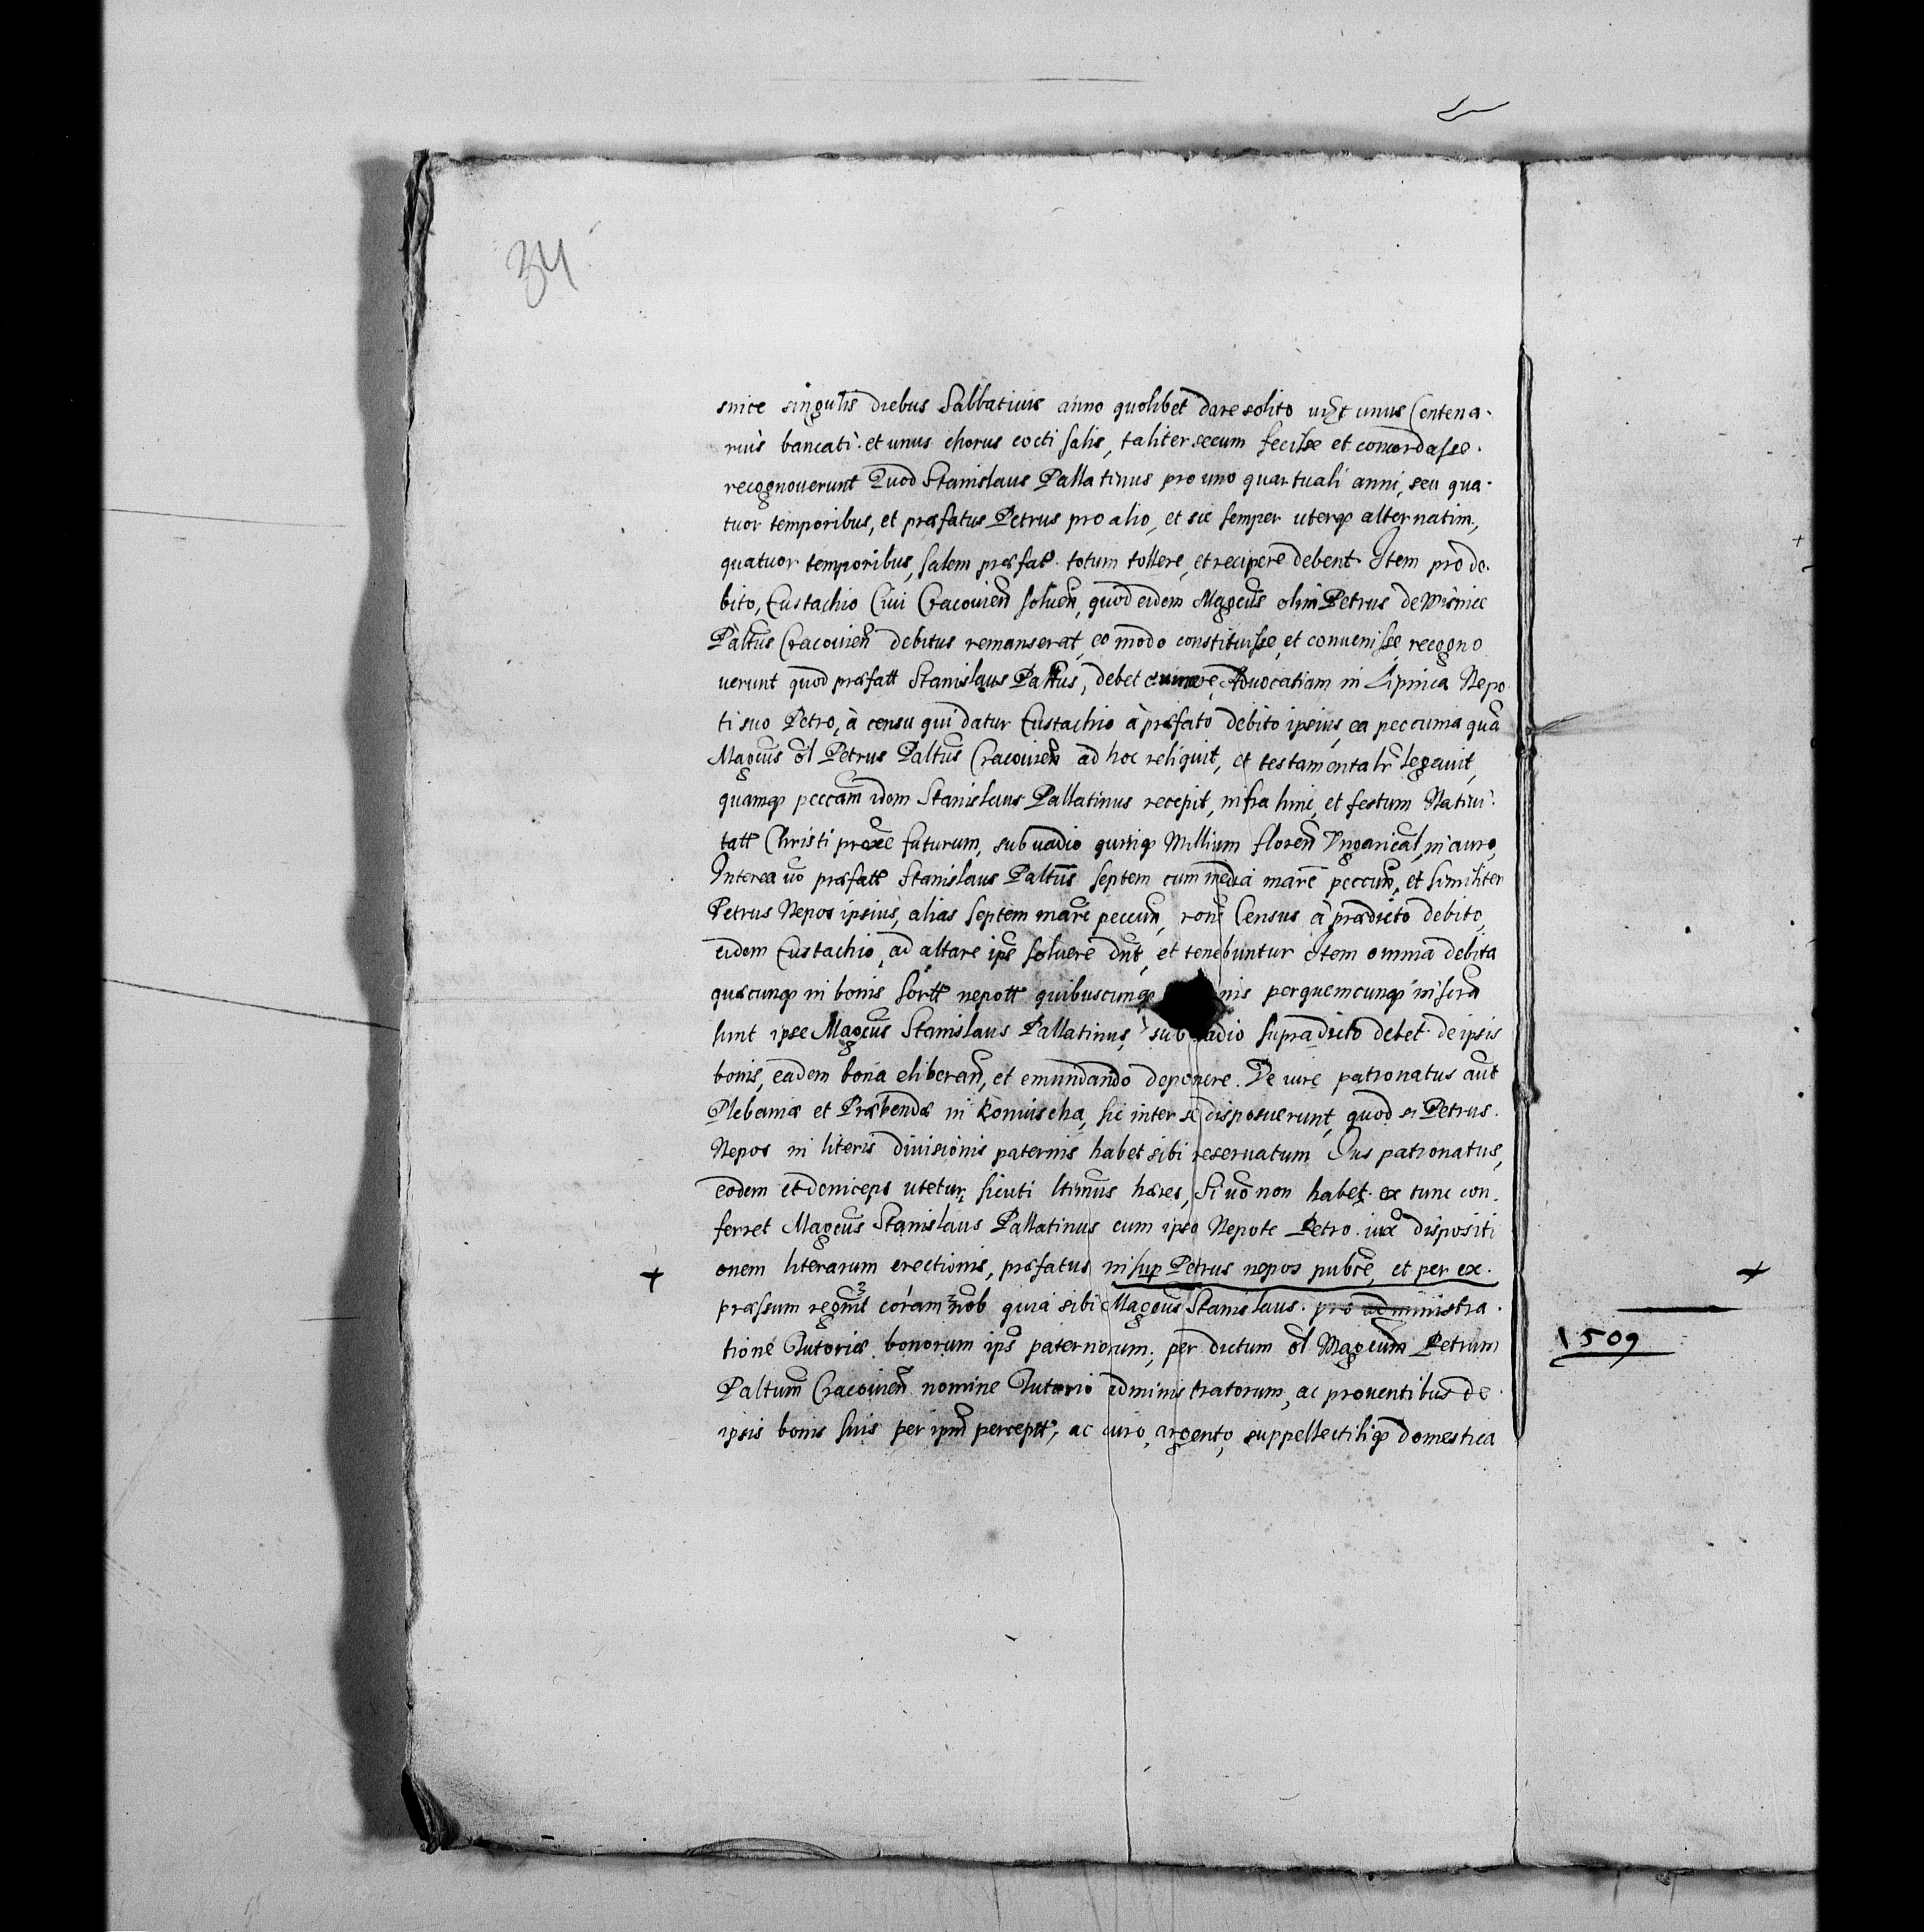 34
snice singulis diebus Sabbativis anno quolibet dare solito unus Centena.
rius bancati. et unus chorus cocti salis, taliter secum fecisse et concordasse.
recognouerunt Quod Stanislaus Pallatinus pro uno quartuali anni, seu qua.
tuor temporibus, et præfatus Petrus pro alio, et sic semper uterq alternatim,
quatuor temporibus, salem præfat totum tollere, et recipere debent. Item pro de.
bito, Eustachio Ciui Cracouien soluen, quod eidem Magcus olim Petrus de Wisnice
Paltus Cracouien debitus remanserat, eo modo constituisse, et conuenisse, recogno
uerunt quod præfatt Stanislaus Paltus, debet Aduocatiam in Lipnica Nepo
ti suo Petro, à censu qui datur Eustachio à præfato debito ipsius, ea peccunia quã
Magcus ol Petrus Paltus Cracouien ad hoc reliquit, et testamentalr legauit,
quamq peccam idem Stanislaus Pallatinus recepit, infra hinc, et festum Natiui.
tatt Christi proxe futurum, sub uadio quinq Millium floren Vngarical, in auro,
Interea uo præfatt Stanislaus Paltus septem cum media marc peccun, et similiter
Petrus Nepos ipsius, alias septem marc peccun, rone Census à prædicto debito,
eidem Eustachio, ad altare ips soluere dnt, et tenebuntur Item omnia debita
quæcunq in bonis sortt nepott quibuscunq nis perquemcunq inscra
sunt ipse Magcus Stanislaus Pallatinus, sub uadio supradicto debet de ipsis
bonis, eadem bona eliberan, et emundando deponere. De iure patronatus aut
Plebaniæ et Præbendæ in Komuscha, sic inter se disposuerunt, quod si Petrus.
Nepos in literis diuisionis paternis habet sibi reseruatum Ius patronatus,
eodem et deinceps utetur, sicuti ltimus hæres, Si uo non habet. ex tunc con.
ferret Magcus Stanislaus Pallatinus cum ipso Nepote Petro iux dispositi
+ onem literarum erectionis, præfatus insup Petrus nepos pubce, et per ex. +
præssum regnit coram nob quia sibi Magcus Stanislaus. pro administra.
tione Tutoriæ bonorum ips paternorum, per dictum ol Magcum Petrum
1509
Paltum Cracouien nomine Tutorio administratorum, ac prouentibus de.
ipsis bonis suis per ipm percept, ac auro, argento, suppellectiliq domestica